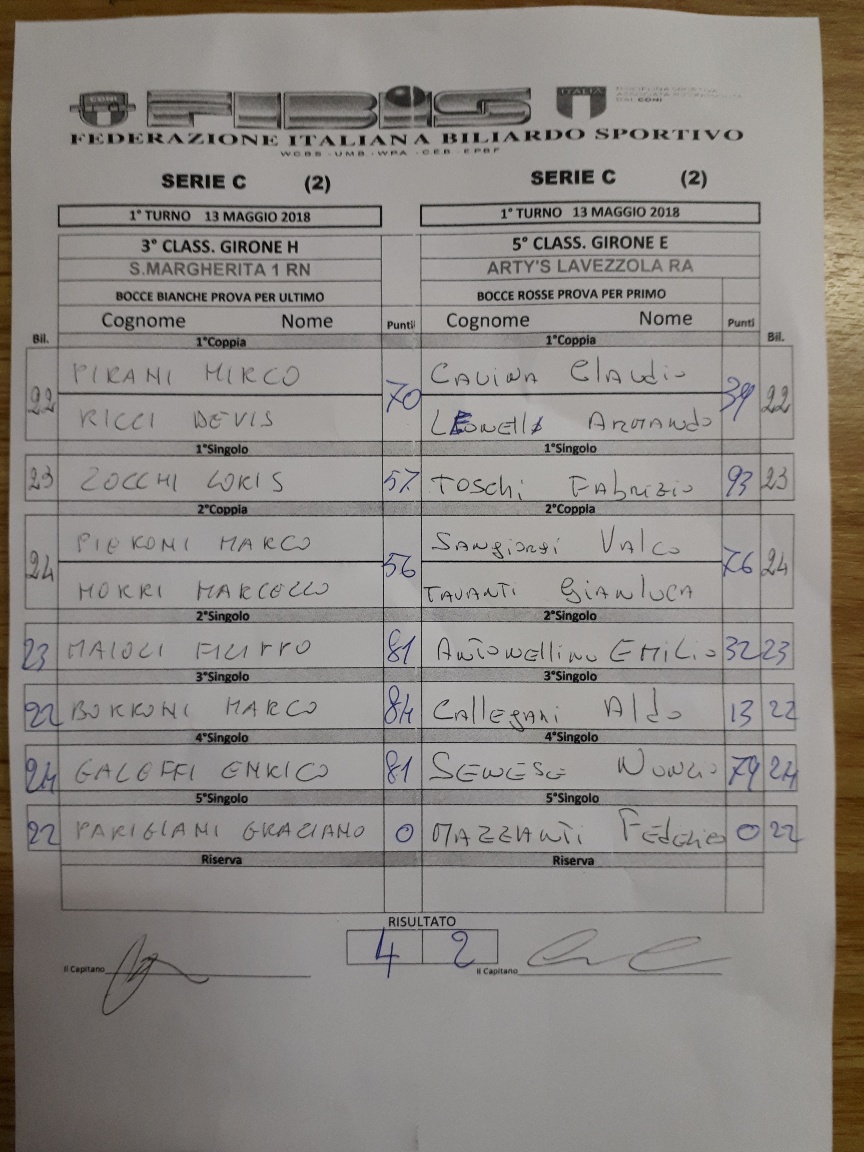 CONI FIBIS ITALIA
FEDERAZIONE ITALIANA BILIARDO SPORTIVO
WCBS - UMB - WPA - CEB - EPBF
SERIE C (2) SERIE C (2)
1° TURNO 13 MAGGIO 2018 1° TURNO 13 MAGGIO 2018
3° CLASS. GIRONE H 5° CLASS. GIRONE E
S.MARGHERITA 1 RN ARTY'S LAVEZZOLA RA
BOCCE BIANCHE PROVA PER ULTIMO BOCCE ROSSE PROVA PER PRIMO
Cognome Nome Punti Cognome Nome Punti
Bil. 1°Coppia 1°Coppia Bil.
PIRANI MIRCO CAVINA Claudio
22 70 39 22
RICCI DEVIS LEONELLI ARMANDO
1°Singolo 1°Singolo
23 ZOCCHI LORIS 57 TOSCHI FABRIZIO 93 23
2°Coppia 2°Coppia
PIERONI MARCO SANGIORGI VALCO
24 56 76 24
MORRI MARCELLO TAVANTI GIANLUCA
2°Singolo 2°Singolo
23 MAIOLI FILIPPO 81 ANTONELLINI EMILIO 32 23
3°Singolo 3°Singolo
22 BORRONI MARCO 84 CALLEGARI Aldo 13 22
4°Singolo 4°Singolo
24 GALOFFI ENRICO 81 SENESE NUNZIO 79 24
5°Singolo 5°Singolo
22 PARIGIANI GRAZIANO 0 MAZZANTI FEDERICO 0 22
Riserva Riserva
RISULTATO
4 2
Il Capitano Il Capitano